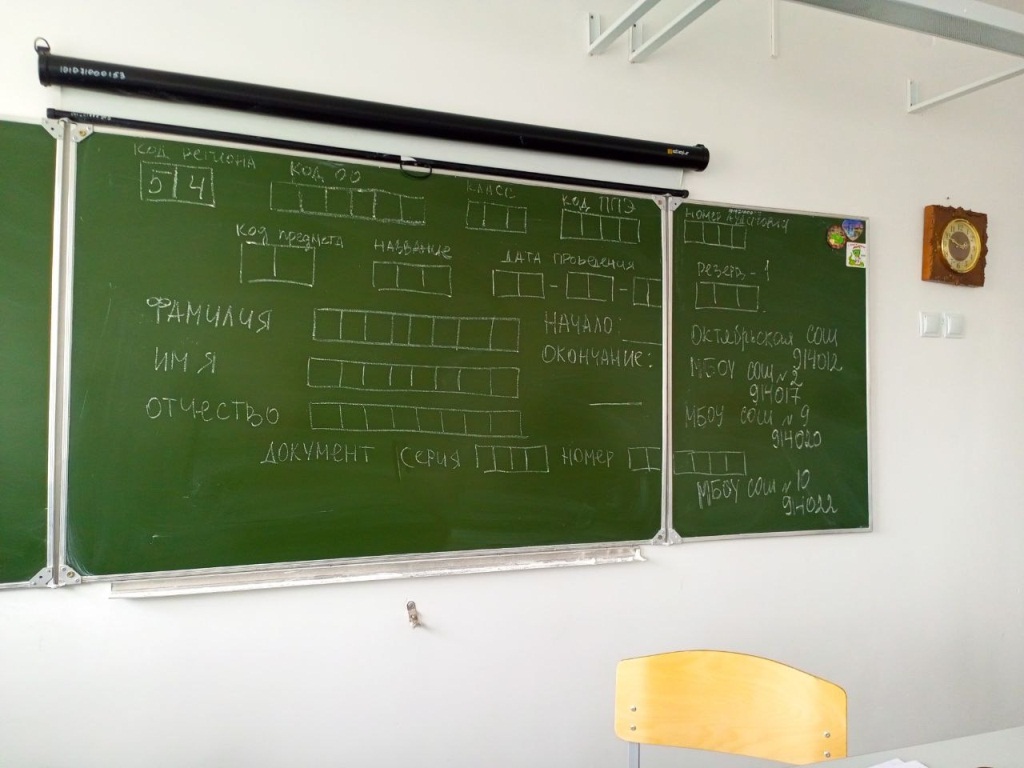 101031000153
КОД РЕГИОНА КОД ОО КЛАСС КОД ППЭ
5 4
КОД ПРЕДМЕТА НАЗВАНИЕ ДАТА ПРОВЕДЕНИЯ
- -
ФАМИЛИЯ
НАЧАЛО:
ИМЯ
ОКОНЧАНИЕ:
ОТЧЕСТВО
ДОКУМЕНТ СЕРИЯ НОМЕР
НОМЕР АУДИТОРИИ
РЕЗЕРВ - 1
Октябрьская СОШ
914012
МБОУ СОШ № 2
914017
МБОУ СОШ № 9
914020
МБОУ СОШ № 10
914022